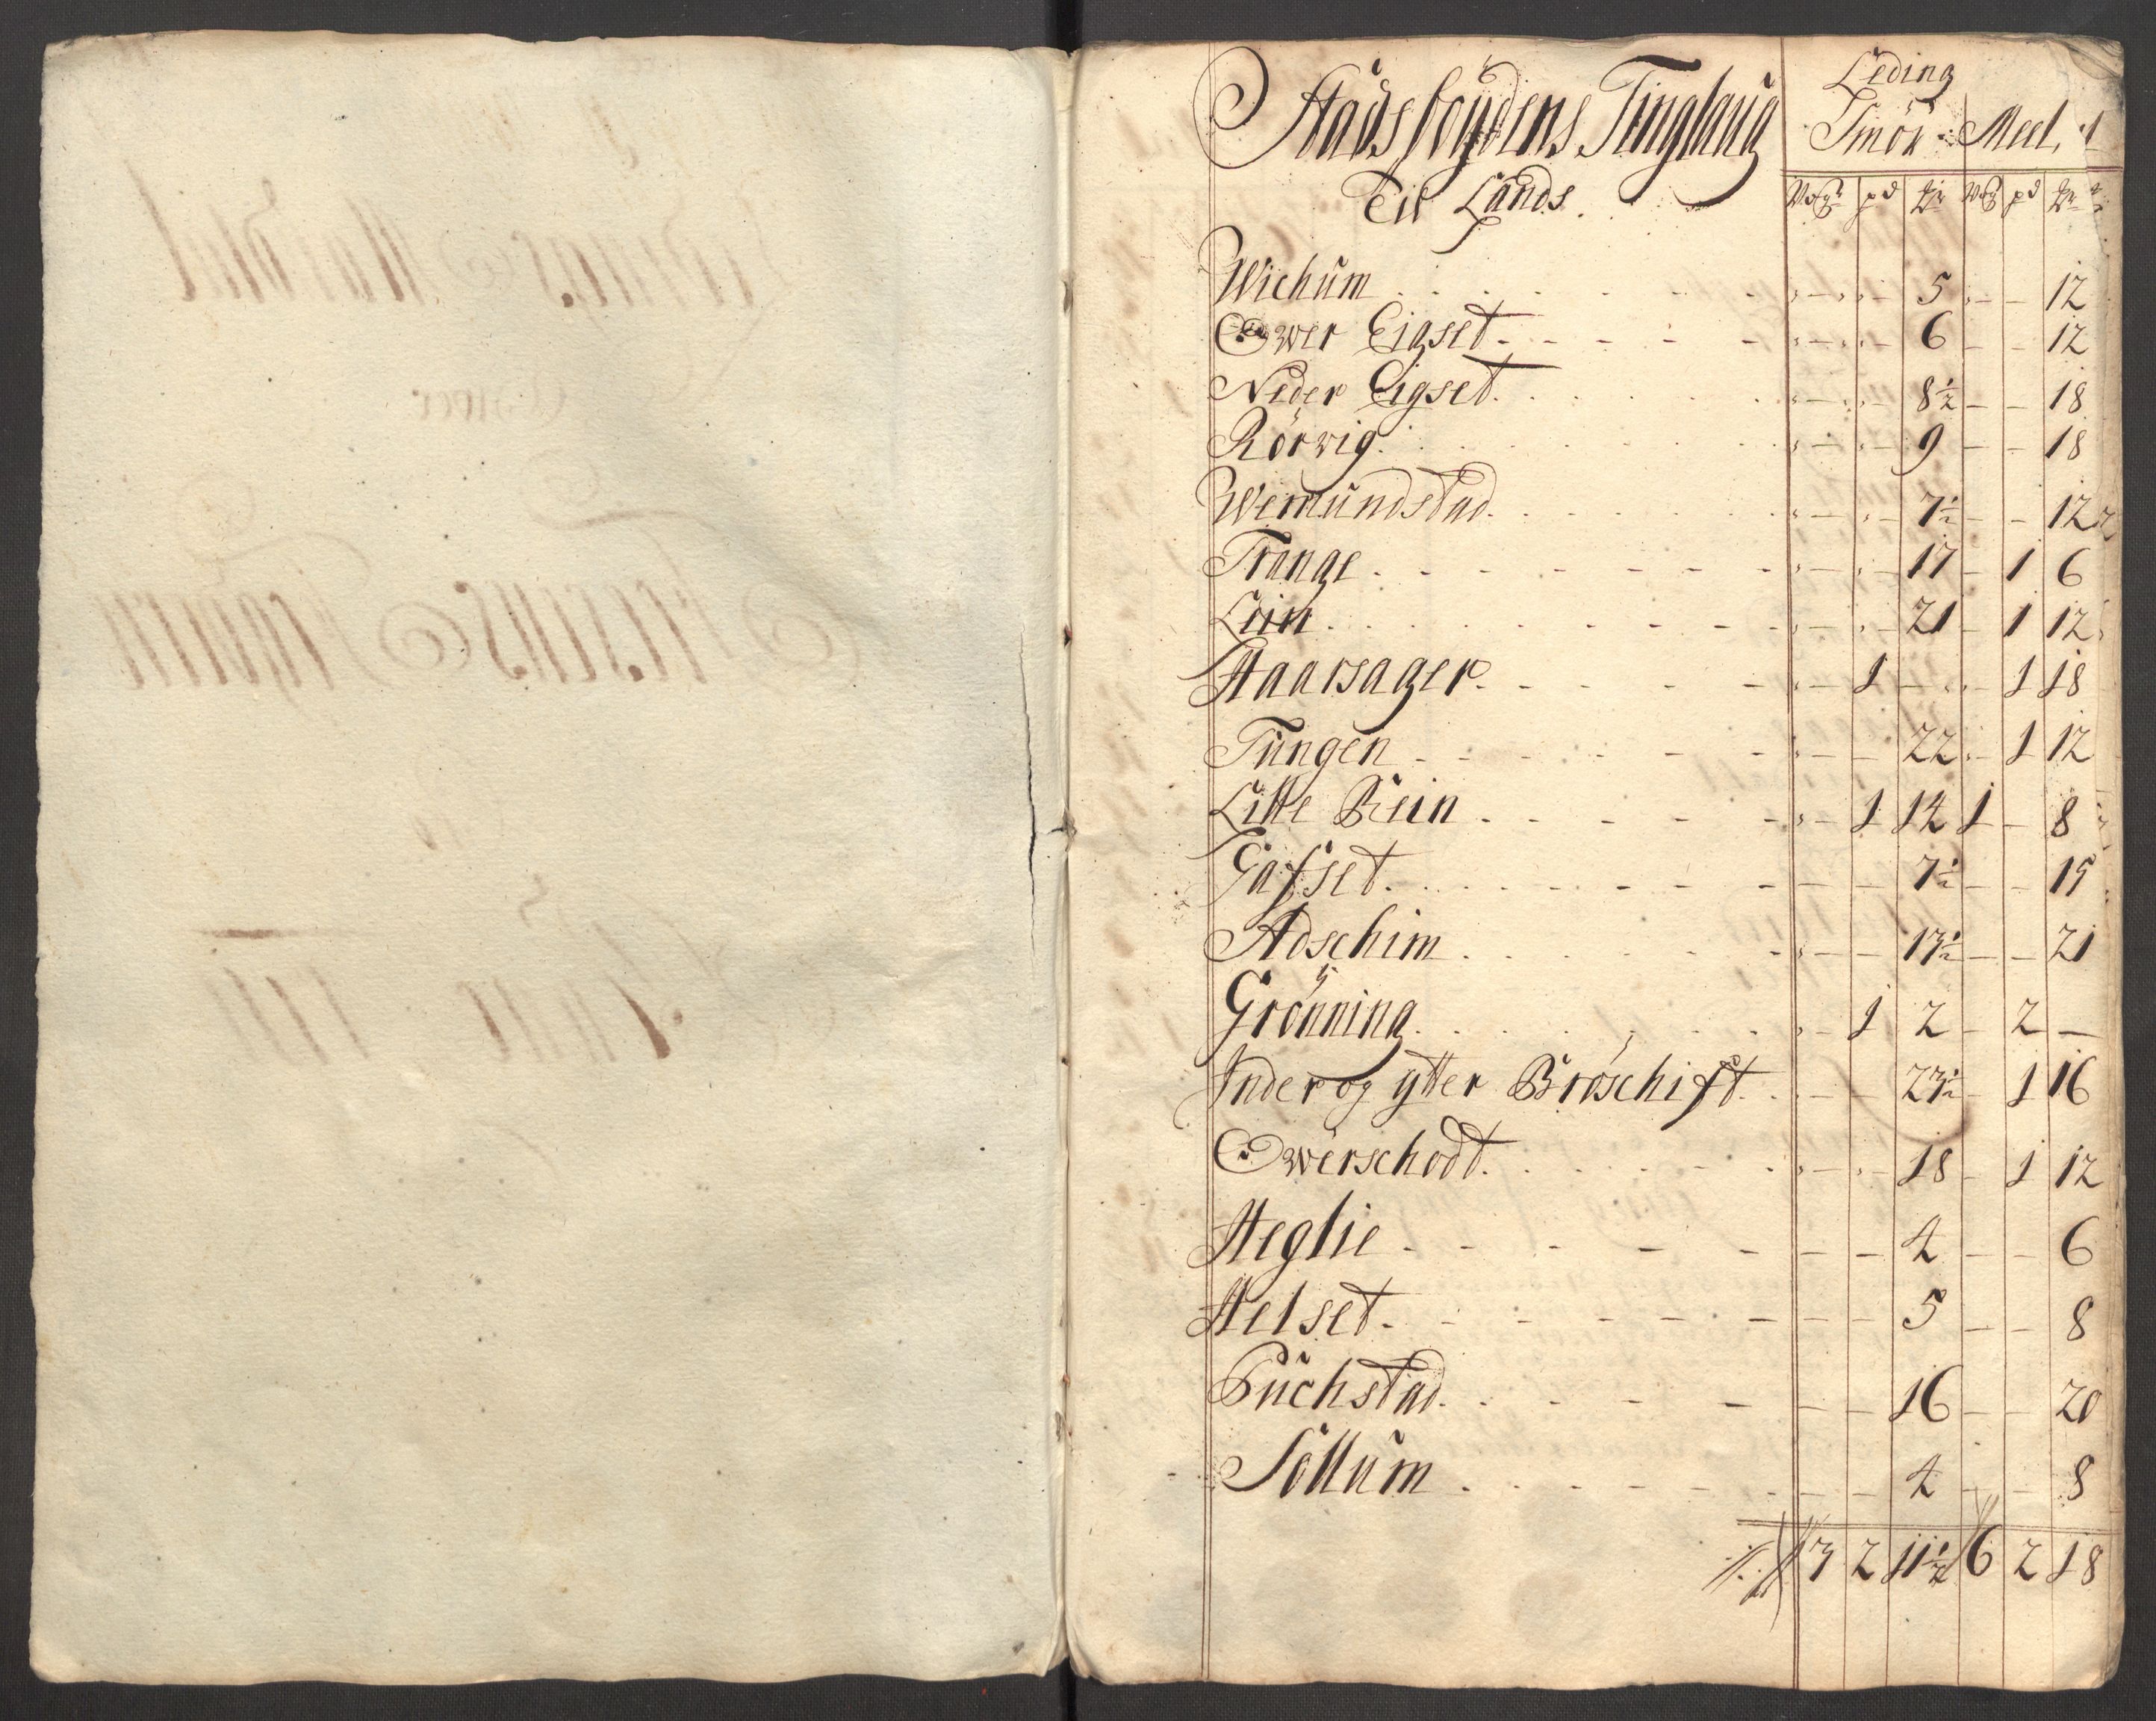 Stadsboÿdens Tinglaug
Til Lands.
Leding
Smör Meel,
Wog pd mr Wog pd mr
Wichum 5 12
Ower Eigset 6 12
Neder Eigset 8½ 18
Rörwig 9 18
Wemundstad 7½ 12
Trange 17 1 6
Lein 21 1 12
Haarsager 1 1 18
Tungen 22 1 12
Litle Rein 1 14 1 8
Gafset 7½ 15
Adschim 13½ 21
Grönning 1 2 2
Inder og ytter Bröschift 23½ 1 16
Owerschodt 18 1 12
Heglie 4 6
Helset 5 8
Buchstad 16 20
Sollum 4 8
3 2 11½ 6 2 18